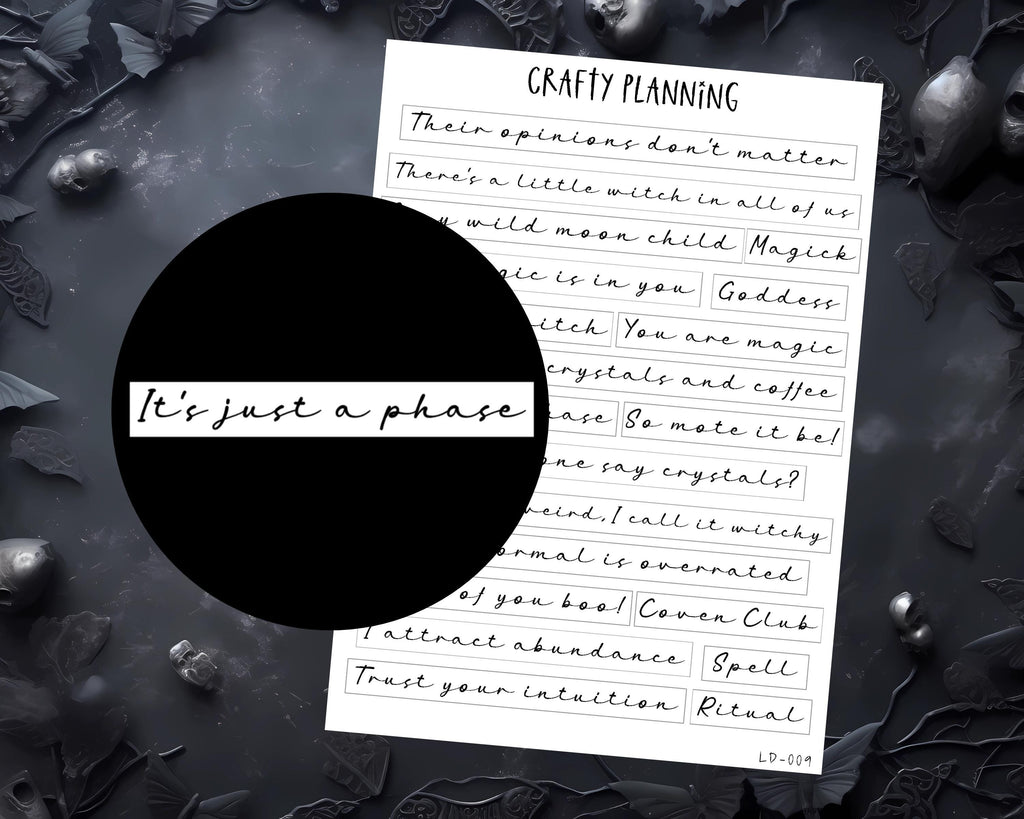 CRAFTY PLANNING
Their opinions don't matter
There's a little witch in all of us
wild moon child Magick
is in you Goddess
You are magic
crystals and coffee
So mote it be!
say crystals?
I call it witchy
is overrated
of you boo! Coven Club
I attract abundance Spell
Trust your intuition Ritual
LD-009
It's just a phase